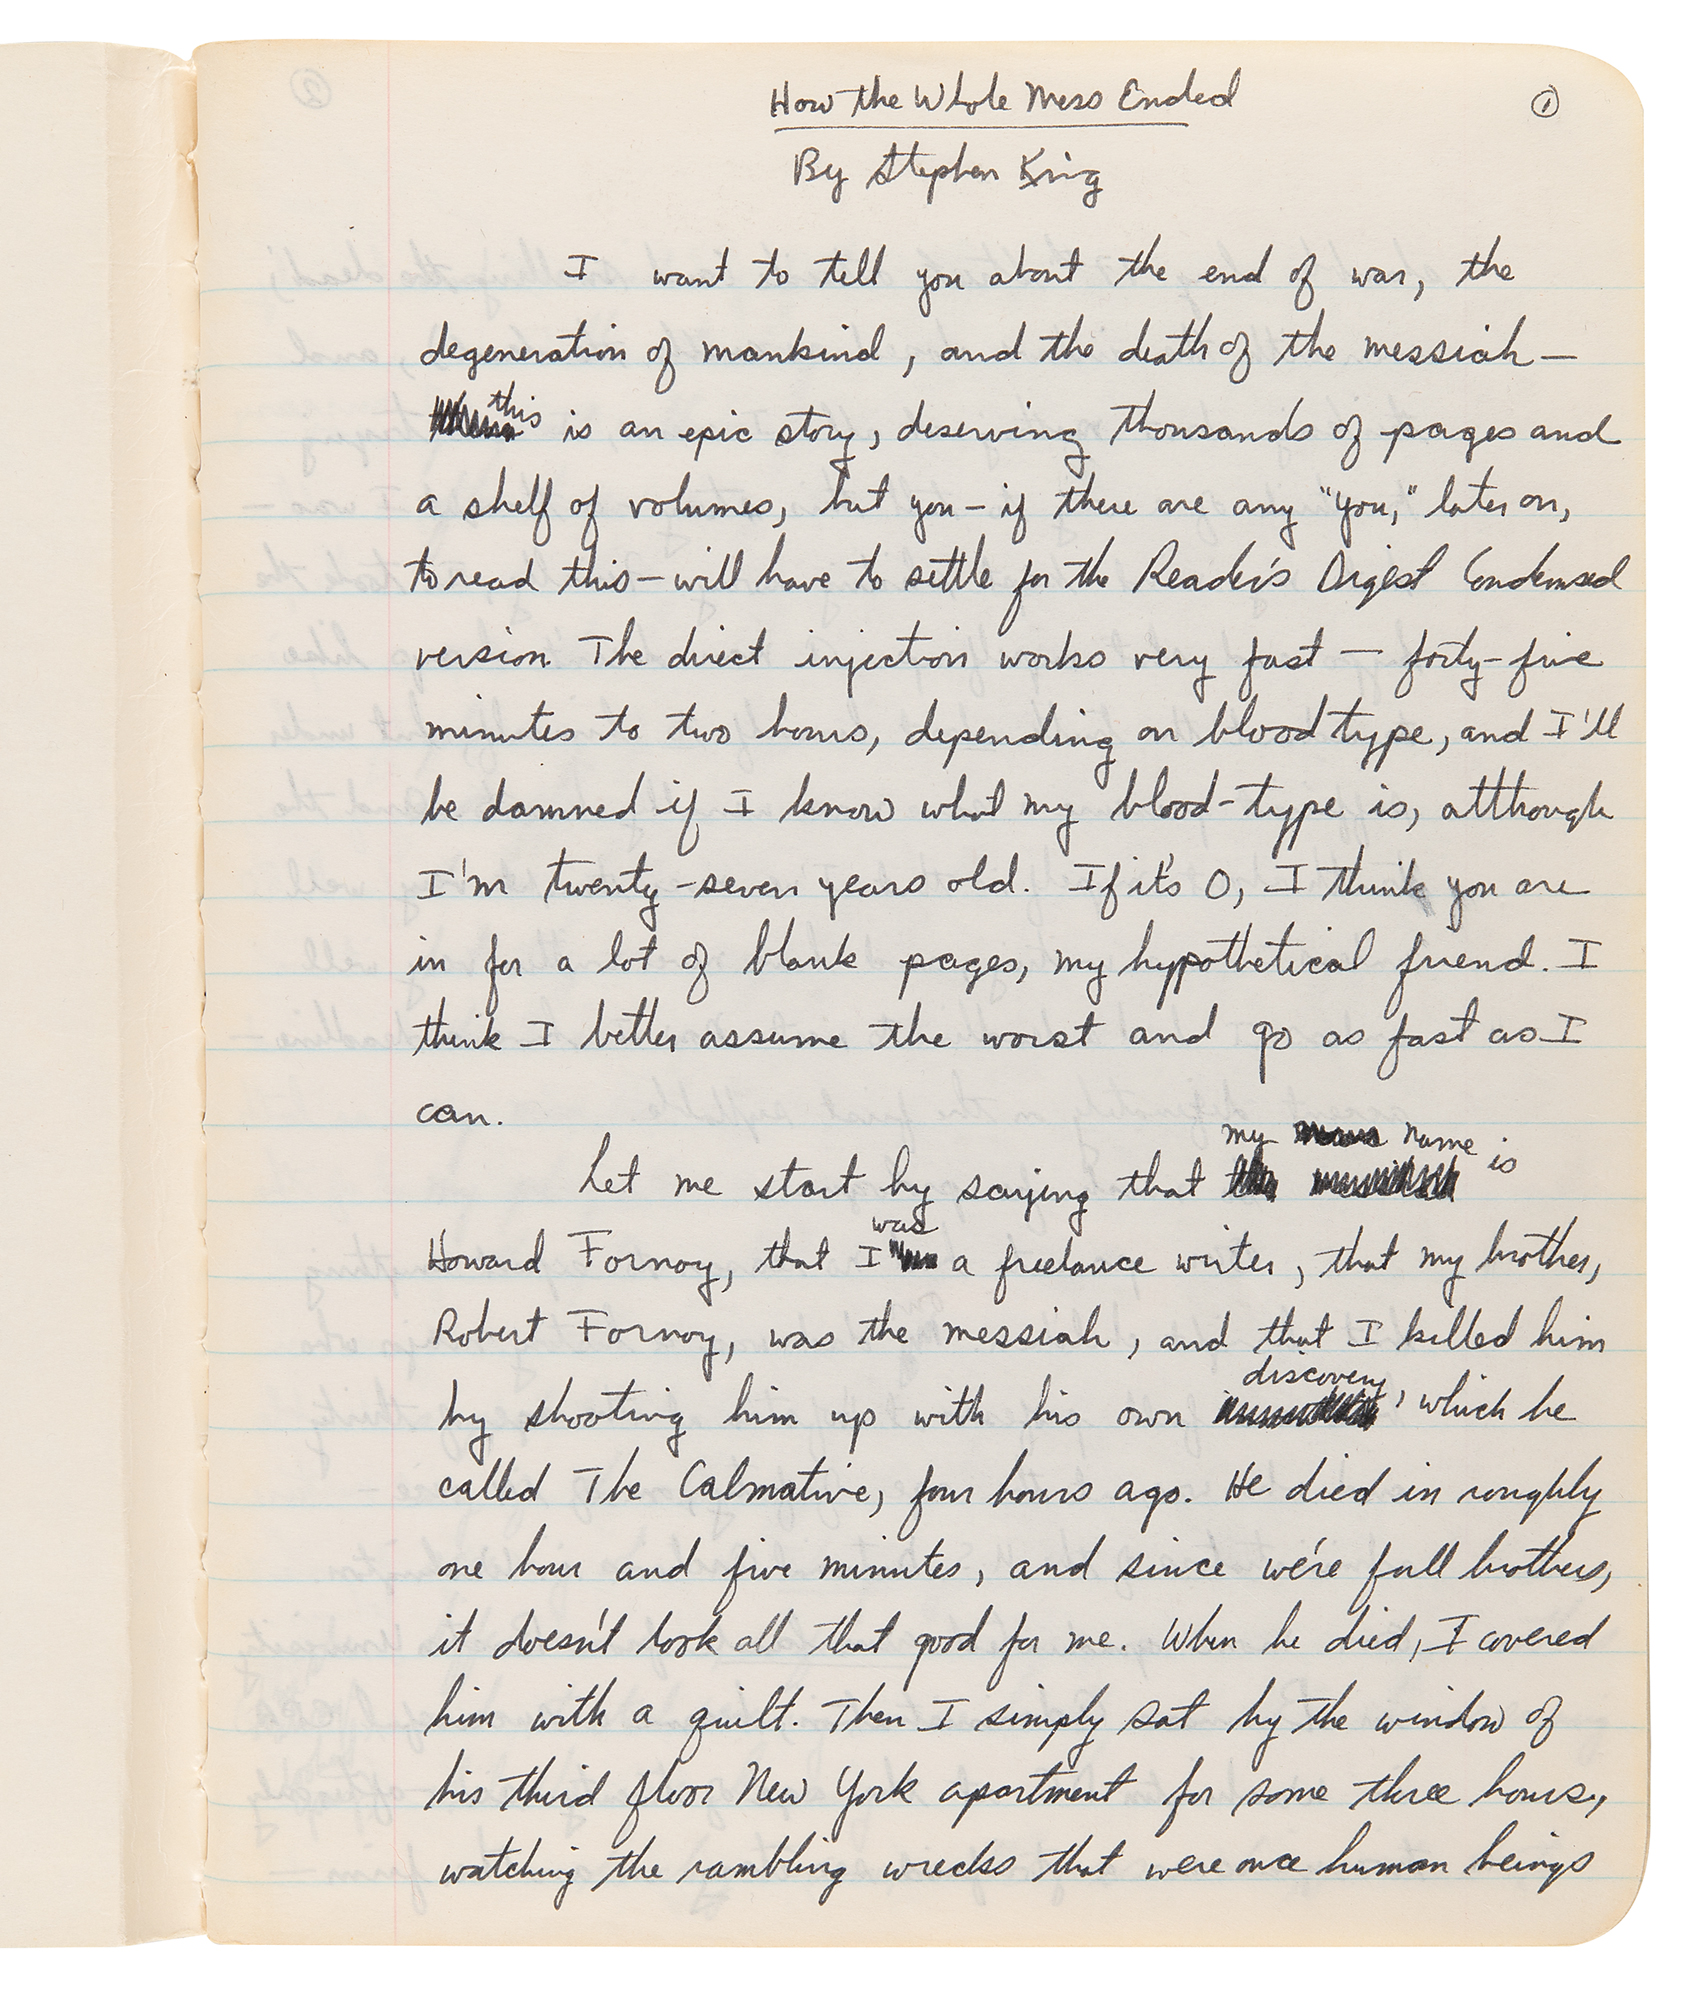 How the Whole Mess Ended
①
By Stephen King
I want to tell you about the end of war, the
degeneration of mankind, and the death of the messiah—
this is an epic story, deserving thousands of pages and
a shelf of volumes, but you—if there are any "you," later on,
to read this—will have to settle for the Reader's Digest Condensed
version. The direct injection works very fast — forty-five
minutes to two hours, depending on blood type, and I'll
be damned if I know what my blood-type is, although
I'm twenty-seven years old. If it's O, I think you are
in for a lot of blank pages, my hypothetical friend. I
think I better assume the worst and go as fast as I
can.
Let me start by saying that my name is
Howard Fornoy, that I was a freelance writer, that my brother,
Robert Fornoy, was the messiah, and that I killed him
by shooting him up with his own discovery, which he
called The Calmative, four hours ago. He died in roughly
one hour and five minutes, and since we're full brothers,
it doesn't look all that good for me. When he died, I covered
him with a quilt. Then I simply sat by the window of
his third floor New York apartment for some three hours,
watching the rambling wrecks that were once human beings